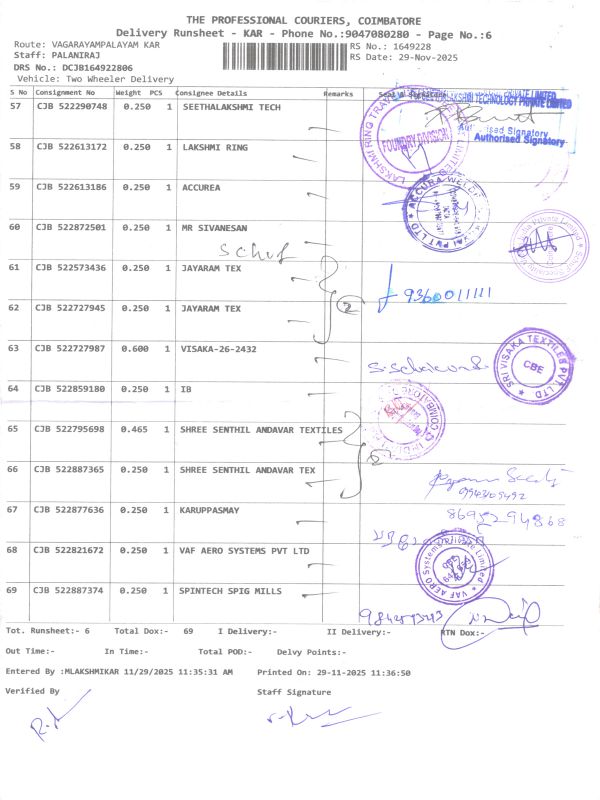 THE PROFESSIONAL COURIERS, COIMBATORE
Delivery Runsheet - KAR - Phone No.:9047080280 - Page No.:6
Route: VAGARAYAMPALAYAM KAR
RS No.: 1649228
Staff: PALANIRAJ
RS Date: 29-Nov-2025
DRS No.: DCJB164922806
Vehicle: Two Wheeler Delivery
S No Consignment No Weight PCS Consignee Details Remarks
57 CJB 522290748 0.250 1 SEETHALAKSHMI TECH
TECHNOLOGY PRIVATE LIMITED
Authorised Signatory
LAKSHMI RING TRAVELLERS
FOUNDRY DIVISION
58 CJB 522613172 0.250 1 LAKSHMI RING
59 CJB 522613186 0.250 1 ACCUREA
60 CJB 522872501 0.250 1 MR SIVANESAN
61 CJB 522573436 0.250 1 JAYARAM TEX
9360011111
62 CJB 522727945 0.250 1 JAYARAM TEX
2
63 CJB 522727987 0.600 1 VISAKA-26-2432
SRI VISAKA TEXTILES PVT. LTD
CBE
64 CJB 522859180 0.250 1 IB
65 CJB 522795698 0.465 1 SHREE SENTHIL ANDAVAR TEXTILES
66 CJB 522887365 0.250 1 SHREE SENTHIL ANDAVAR TEX
67 CJB 522877636 0.250 1 KARUPPASMAY
68 CJB 522821672 0.250 1 VAF AERO SYSTEMS PVT LTD
VAF AERO Systems Private Limited
69 CJB 522887374 0.250 1 SPINTECH SPIG MILLS
Tot. Runsheet:- 6 Total Dox:- 69 I Delivery:- II Delivery:- RTN Dox:-
Out Time:- In Time:- Total POD:- Delvy Points:-
Entered By :MLAKSHMIKAR 11/29/2025 11:35:31 AM Printed On: 29-11-2025 11:36:50
Verified By Staff Signature